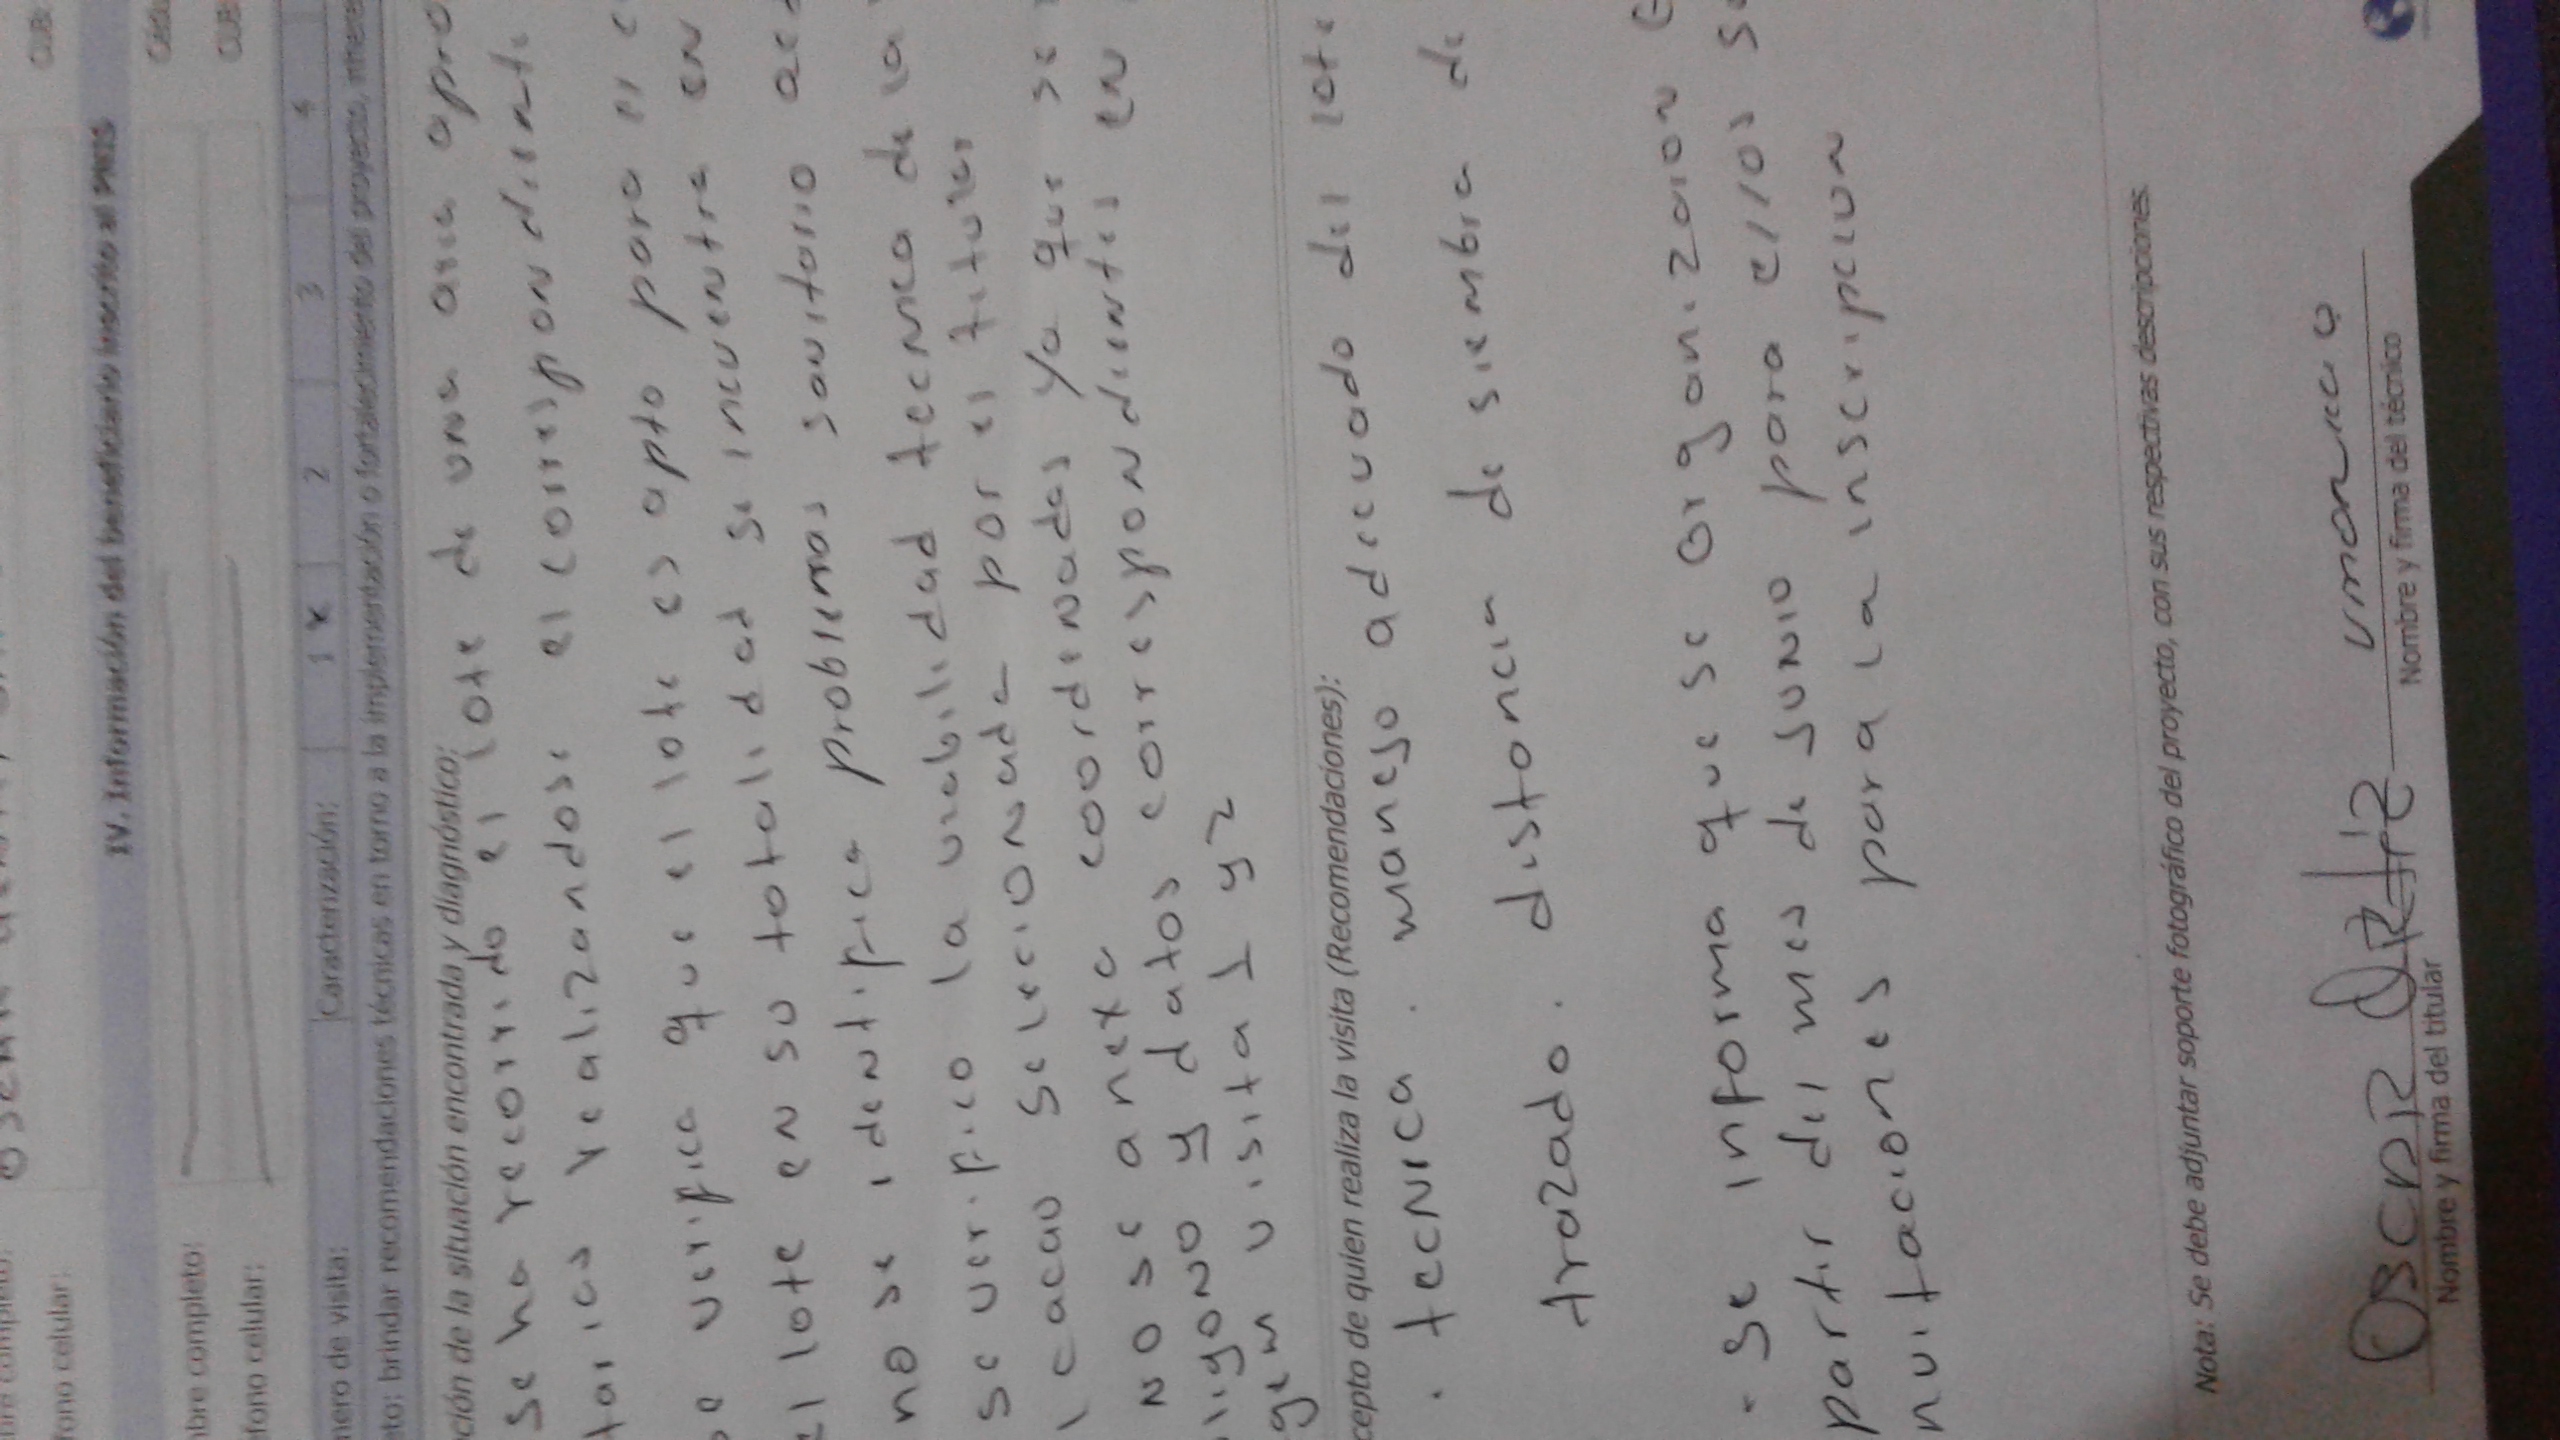 CUB:
fono celular:
IV. Información del beneficiario inscrito al PNIS
bre completo:
fono celular:
CUB:
mero de visita: Caracterización: 1 x 2 3 4
to: brindar recomendaciones técnicas en torno a la implementación o fortalecimiento del proyecto,
ción de la situación encontrada y diagnóstico:
se ha recorrido el lote de una area
realizandose el correspondiente
se verifica que el lote es apto para el c
el lote en su totalidad se incuentra en
no se identifica problemas sanitario
se verifico la viabilidad tecnica de la
cacao selecionada por el titular
no se anexa coordenadas ya que se
ligono y datos correspondientes en
gen visita 1 y 2
cepto de quien realiza la visita (Recomendaciones):
. tecnica. manejo adecuado del lote
trazado. distancia de siembra de
- se informa que se organizaron
partir del mes de junio para ellos se
nvitaciones para la inscripcion
Nota: Se debe adjuntar soporte fotográfico del proyecto, con sus respectivas descripciones.
OSCAR
Nombre y firma del titular Nombre y firma del técnico